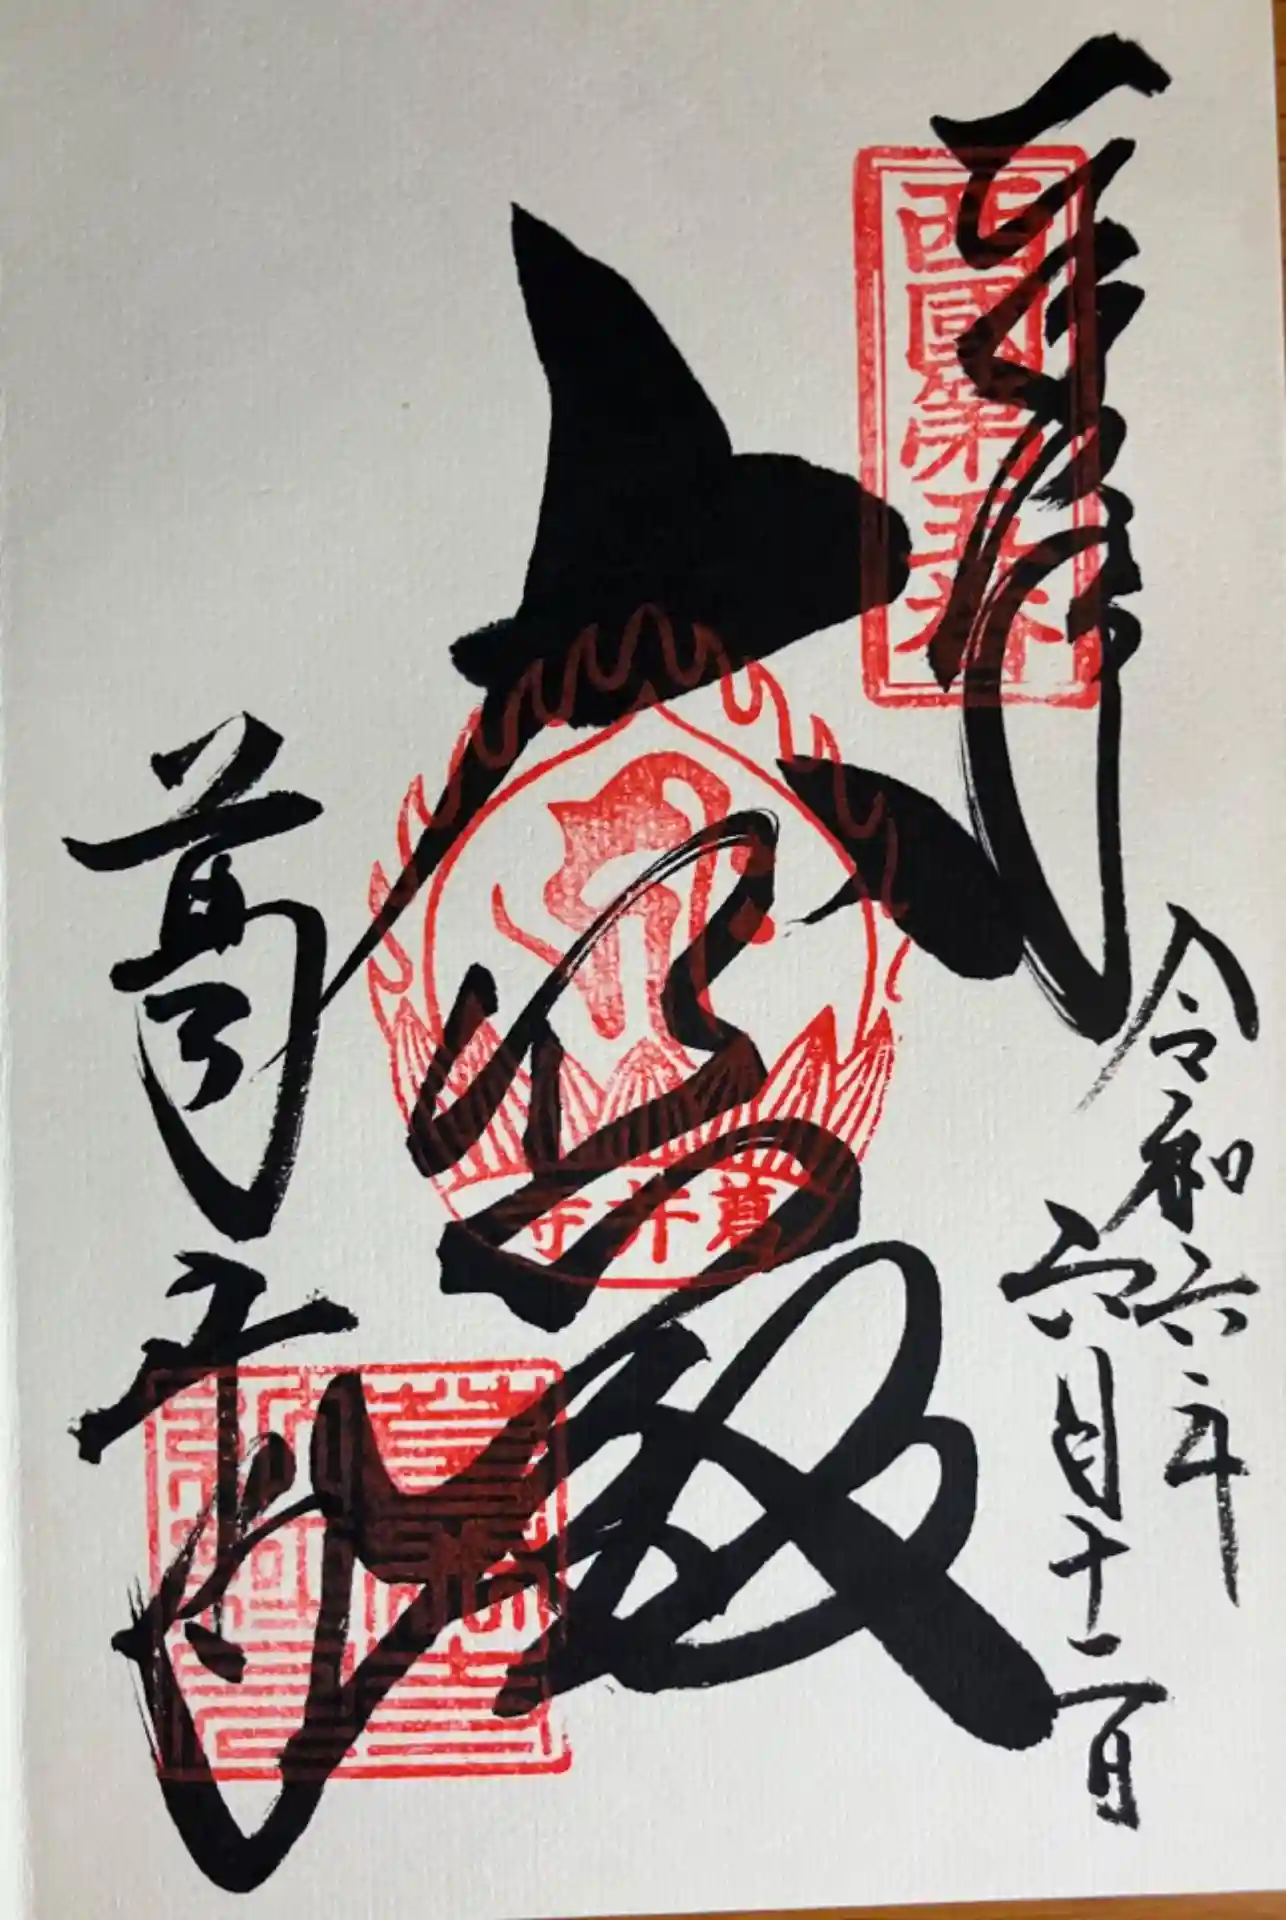 奉拝
西國第五番
令和六年
六月十一日
大悲殿
葛井寺
葛井寺